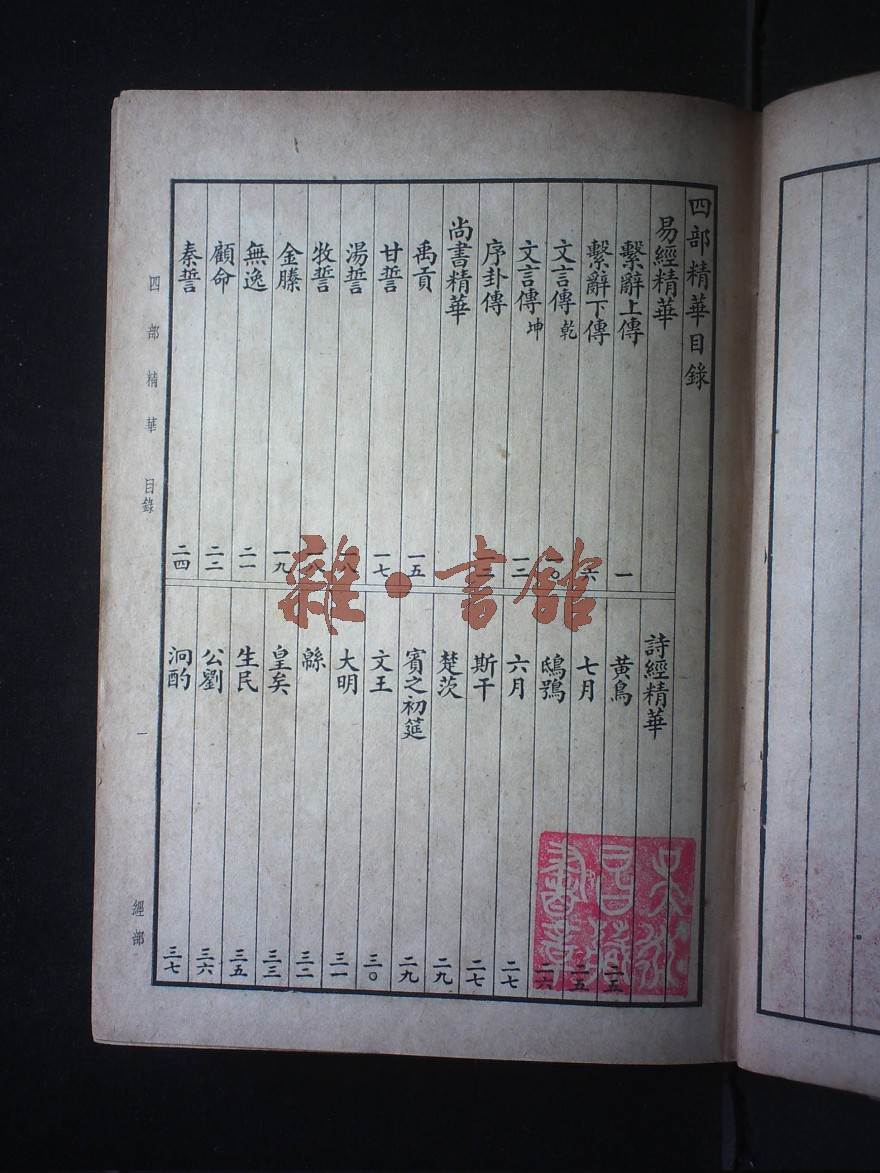 四部精華目錄
易經精華
繫辭上傳 一
繫辭下傳 六
文言傳 乾 一〇
文言傳 坤 一二
序卦傳
尚書精華
禹貢 一五
甘誓 一七
湯誓 一八
牧誓 一八
金縢 一九
無逸 二一
顧命 二二
秦誓 二四
詩經精華
黃鳥 二五
七月 二五
鴟鴞 二六
六月 二七
斯干 二七
楚茨 二九
賓之初筵 二九
文王 三〇
大明 三一
緜 三二
皇矣 三三
生民 三五
公劉 三六
泂酌 三七
四部精華 目錄
一
經部
雜·書館